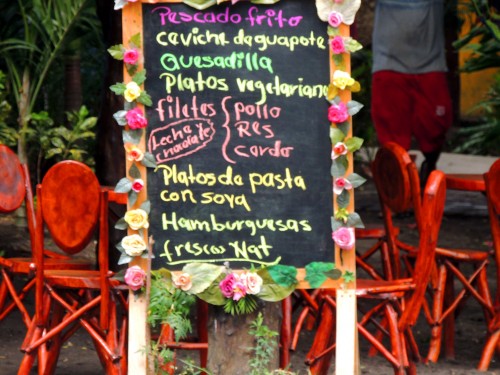 Pescado frito
ceviche de guapote
Quesadilla
Platos vegetariano
filetes { pollo
Res
cerdo
Leche chocolate
Platos de pasta
con soya
Hamburguesas
frescos Nat